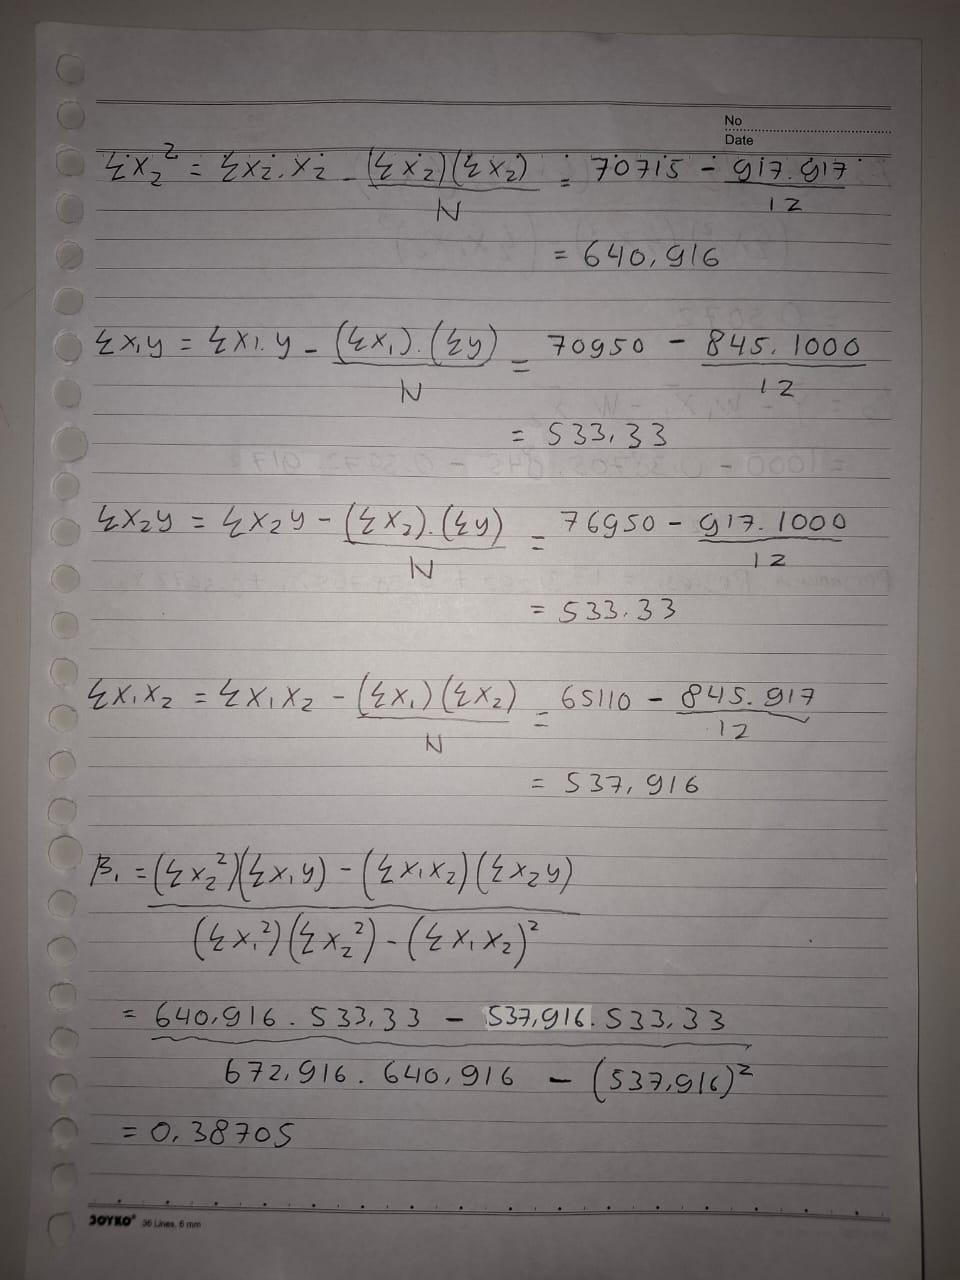 No
Date
Σx₂² = Σx₂.x₂ - (Σx₂)(Σx₂)/N = 70715 - 917.917/12
= 640,916
Σx₁y = Σx1.y - (Σx₁).(Σy)/N = 70950 - 845.1000/12
= 533,33
Σx₂y = Σx₂y - (Σx₂).(Σy)/N = 76950 - 917.1000/12
= 533.33
Σx₁x₂ = Σx₁x₂ - (Σx₁)(Σx₂)/N = 65110 - 845.917/12
= 537,916
β₁ = (Σx₂²)(Σx₁y) - (Σx₁x₂)(Σx₂y)
(Σx₁²)(Σx₂²) - (Σx₁x₂)²
= 640,916 . 533,33 - 537,916. 533,33
672,916 . 640,916 - (537,916)²
= 0,38705
JOYKO® 36 Lines, 6 mm